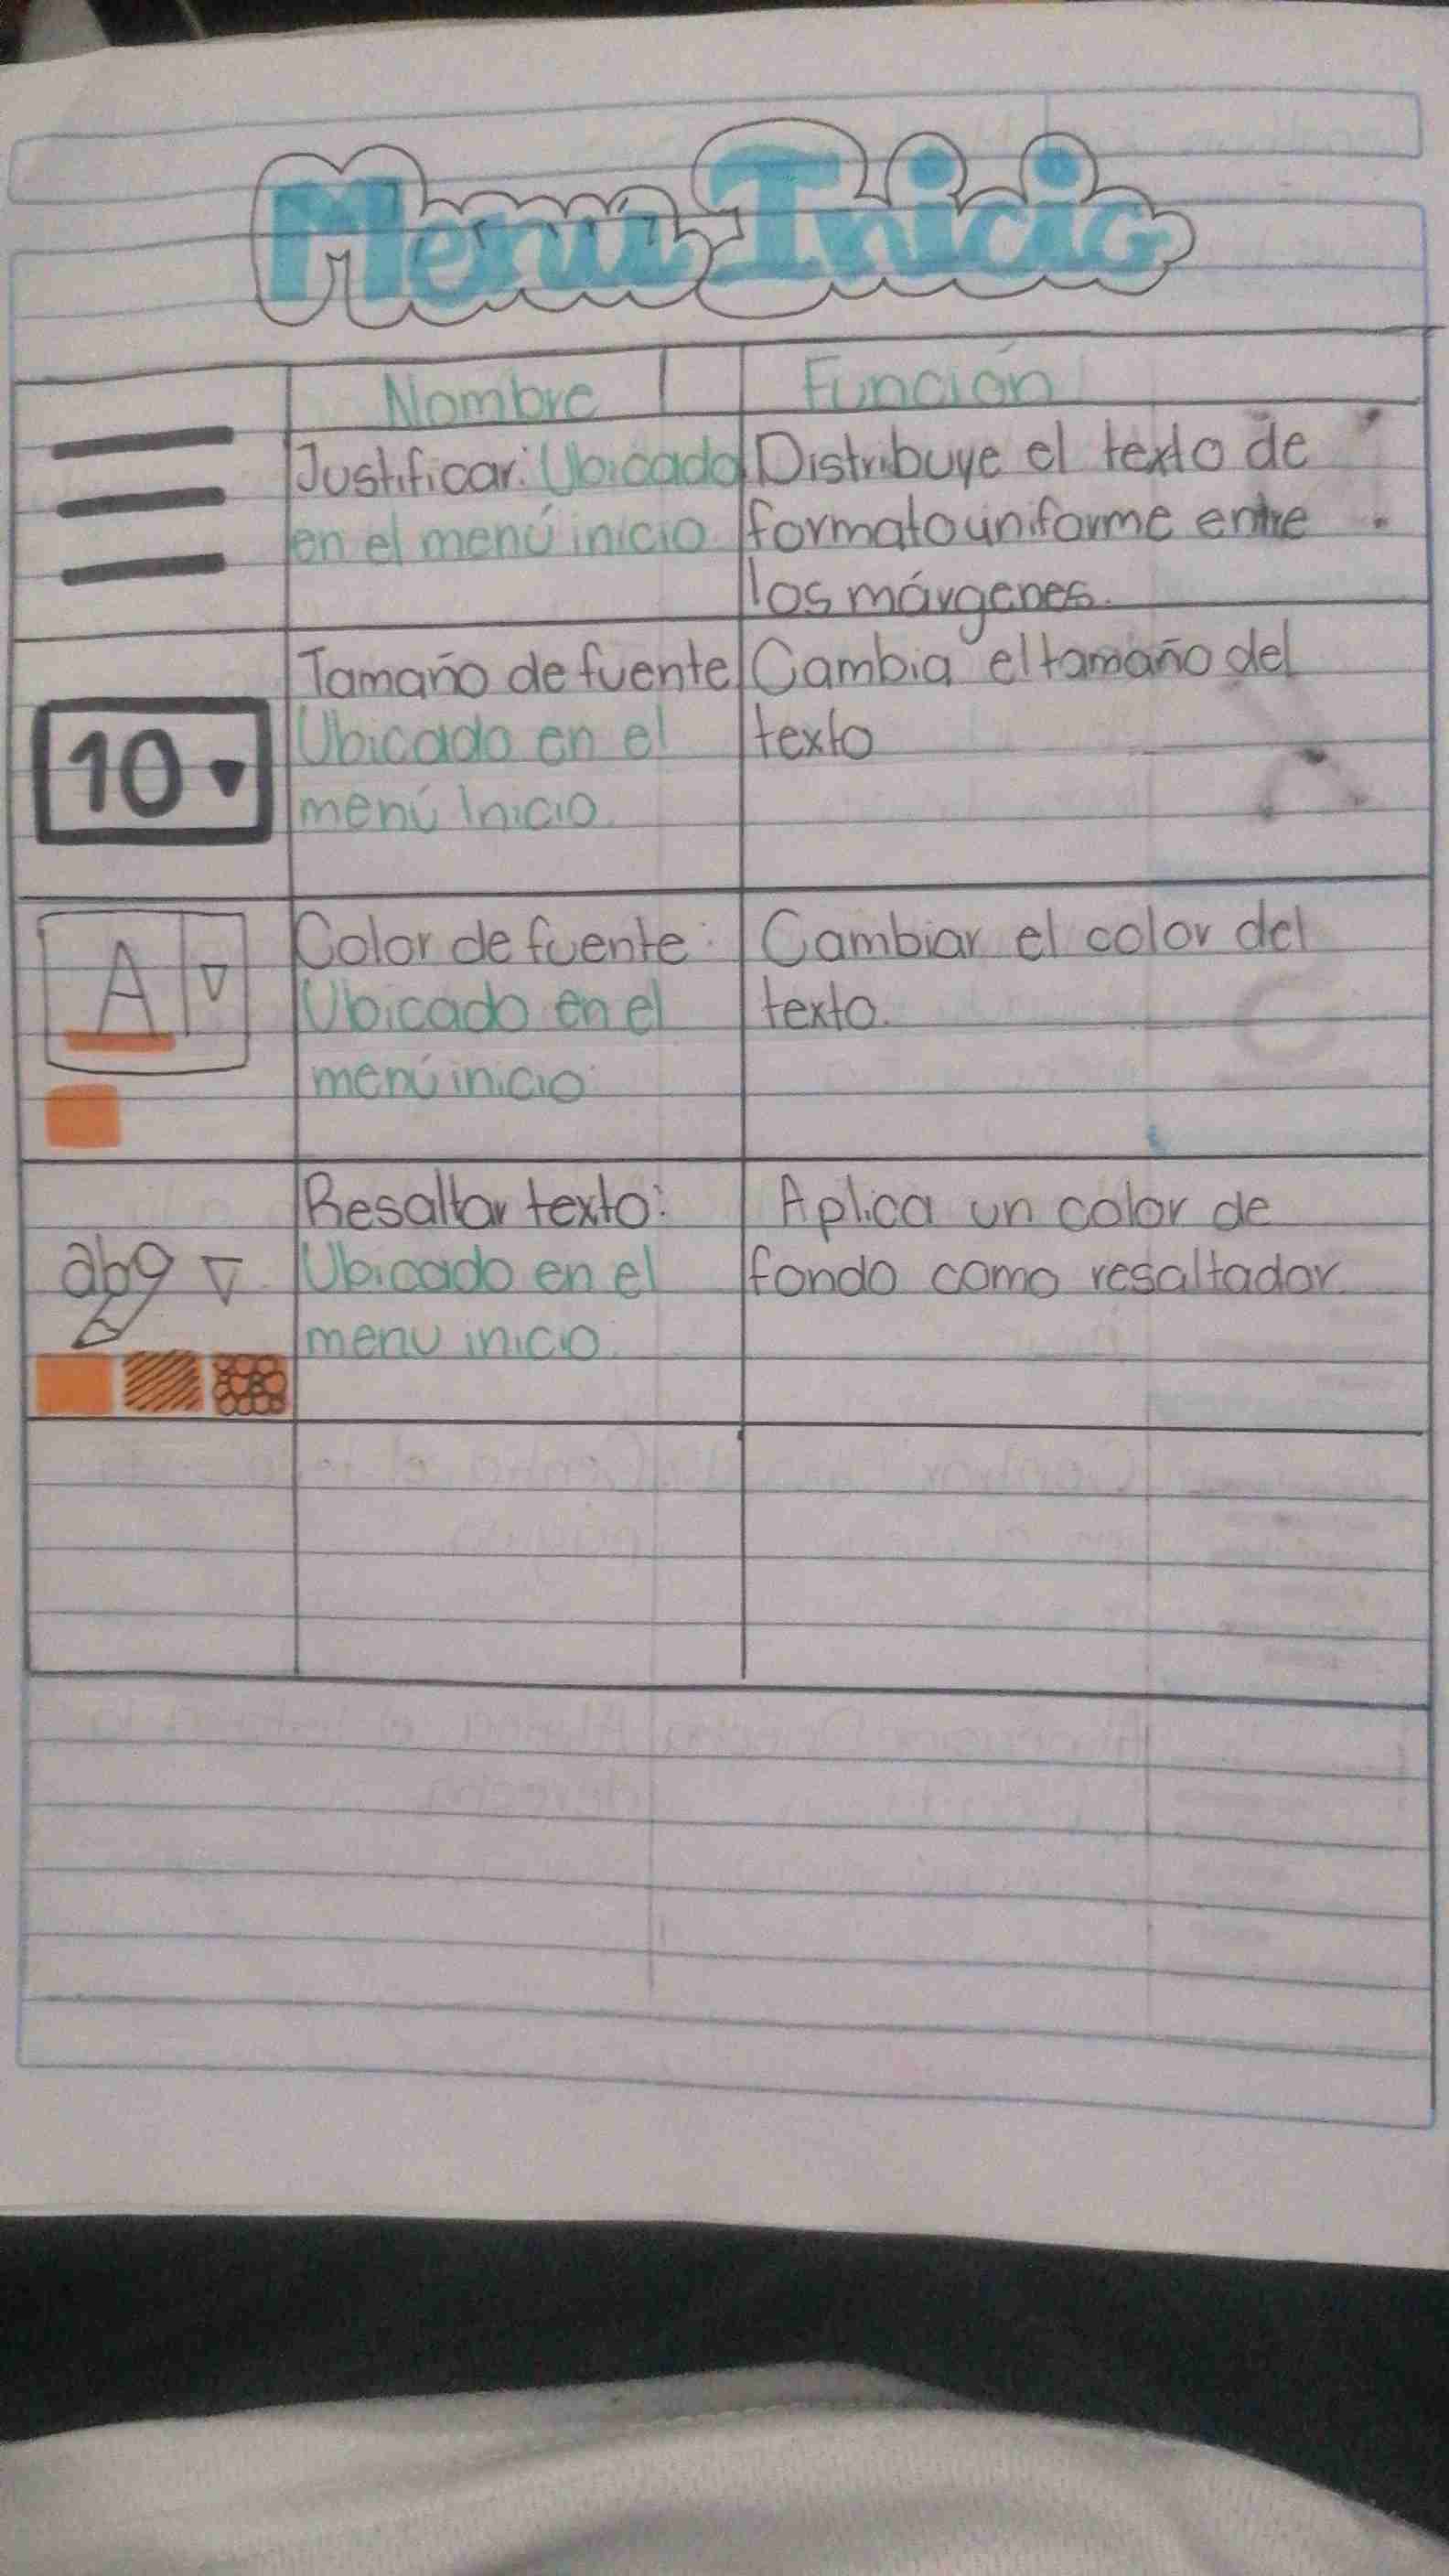 Menú Inicio
Nombre
Función
Justificar: Ubicado
en el menú inicio
Distribuye el texto de
formato uniforme entre
los márgenes.
10
Tamaño de fuente
Ubicado en el
menú Inicio.
Cambia el tamaño del
texto
A
Color de fuente:
Ubicado en el
menú inicio
Cambiar el color del
texto.
Resaltar texto:
abg
Ubicado en el
menu inicio.
Aplica un color de
fondo como resaltador.